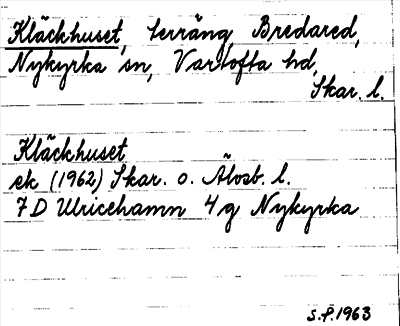 Kläckhuset, terräng, Bredared,
Nykyrka sn, Vartofta hd,
Skar. l.
Kläckhuset
ek (1962) Skar. o. Älvsb. l.
7D Ulricehamn 4g Nykyrka
S.P. 1963